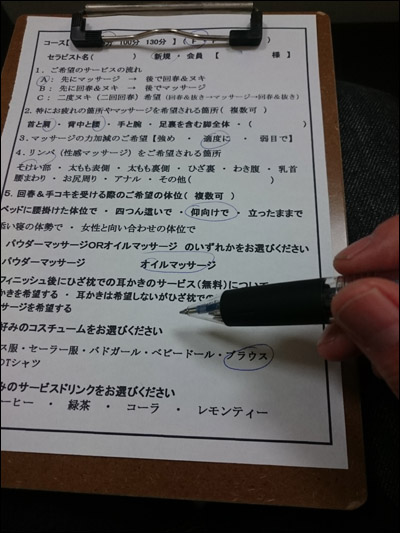 コース【 分 100分 130分 】
セラピスト名( ) 新規・会員 【 様 】
1. ご希望のサービスの流れ
A: 先にマッサージ → 後で回春&ヌキ
B: 先に回春&ヌキ → 後でマッサージ
C: 二度ヌキ(二回回春)希望(回春&抜き→マッサージ→回春&抜き)
2. 特にお疲れの箇所やマッサージを希望される箇所( 複数可 )
首と肩 ・ 背中と腰 ・ 手と腕 ・ 足裏を含む脚全体 ・(
3. マッサージの力加減のご希望【強め ・ 適度に ・ 弱目で】
4. リンパ(性感マッサージ)をご希望される箇所
そけい部 ・ 太もも表側 ・ 太もも裏側 ・ ひざ裏 ・ わき腹 ・ 乳首
腰まわり ・ お尻周り ・ アナル ・ その他( )
5. 回春&手コキを受ける際のご希望の体位( 複数可 )
ベッドに腰掛けた体位で ・ 四つん這いで ・ 仰向けで ・ 立ったままで
い寝の体勢で ・ 女性と向い合わせの体位で
パウダーマッサージORオイルマッサージ のいずれかをお選びください
パウダーマッサージ オイルマッサージ
フィニッシュ後にひざ枕での耳かきのサービス(無料)について
かきを希望する ・ 耳かきは希望しないがひざ枕での
サージを希望する
好みのコスチュームをお選びください
ス服・セーラー服・バドガール・ベビードール・ブラウス
Tシャツ
みのサービスドリンクをお選びください
ーヒー ・ 緑茶 ・ コーラ ・ レモンティー